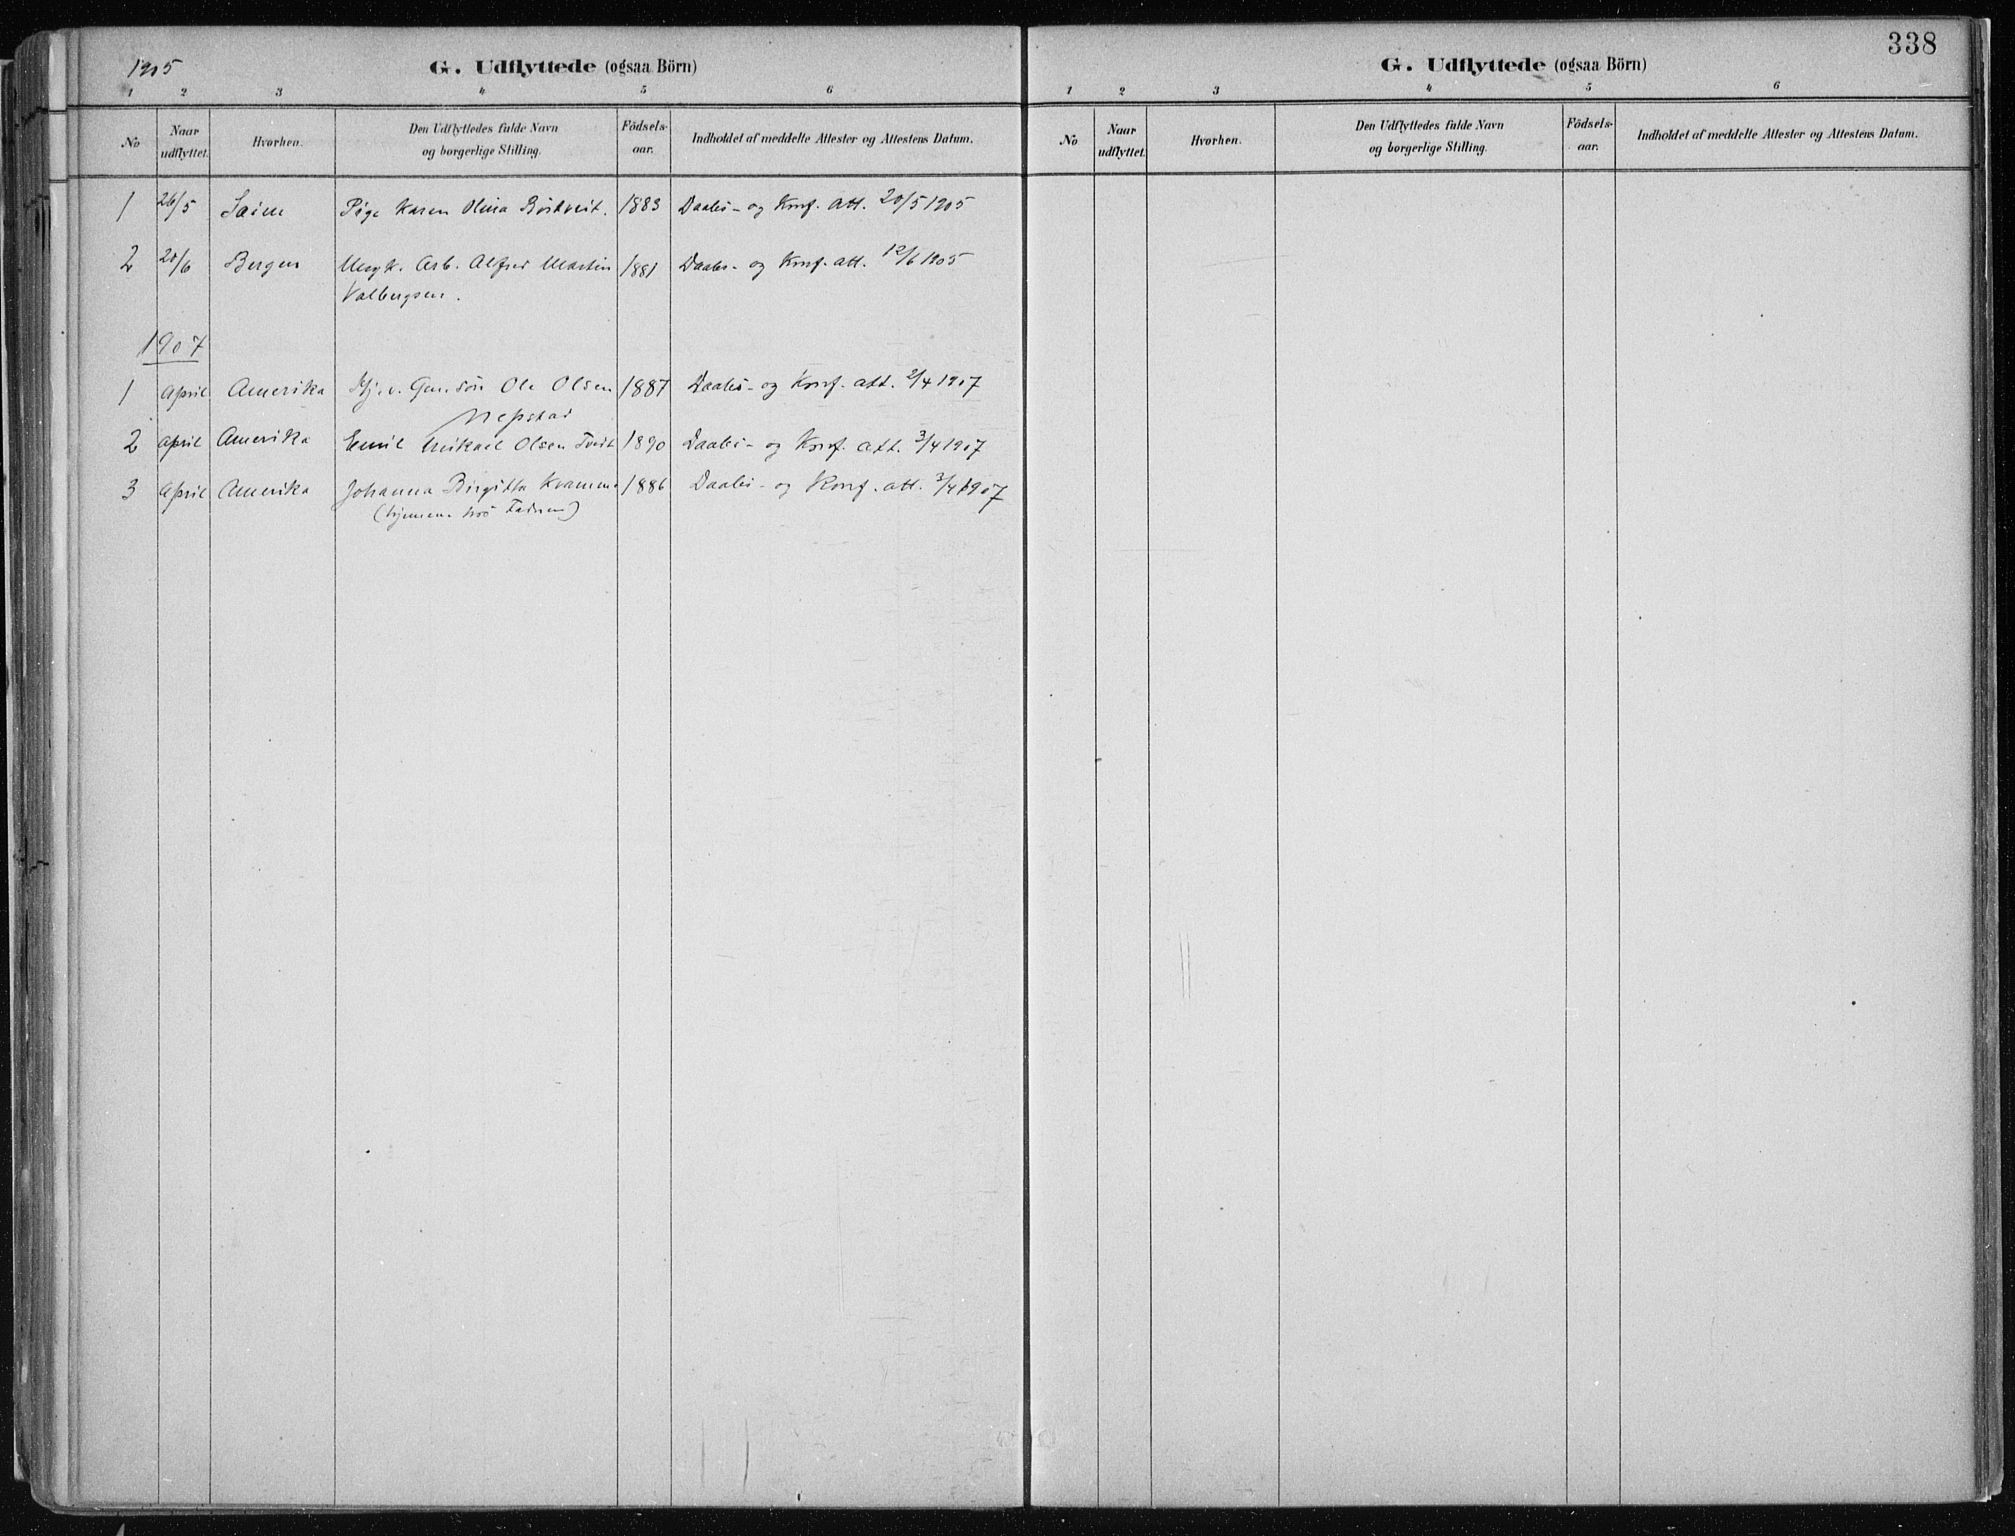 1905
G. Udflyttede (ogsaa Börn)
1 2 3 4 5 6
No Naar udflyttet. Hvorhen. Den Udflyttedes fulde Navn og borgerlige Stilling. Födsels-aar. Indholdet af meddelte Attester og Attestens Datum.
1 26/5 Pige Karen Olina 1883 Daabs- og Konf. att. 20/5 1905
2 20/6 Bergen Arb. Alfred Martin 1881 Daabs- og Konf. att. 12/6 1905
Valbergsen.
1907
1 April Amerika Ole Olsen 1887 Daabs- og Konf. att. 2/4 1907
Nepstad
2 April Amerika Emil Mikael Olsen Tveit 1890 Daabs- og Konf. att. 3/4 1907
3 April Amerika Johanna Birgitta Kvamme 1886 Daabs- og Konf. att. 3/4 1907
(hjemme hos Faderen)
338
G. Udflyttede (ogsaa Börn)
1 2 3 4 5 6
No Naar udflyttet. Hvorhen. Den Udflyttedes fulde Navn og borgerlige Stilling. Födsels-aar. Indholdet af meddelte Attester og Attestens Datum.